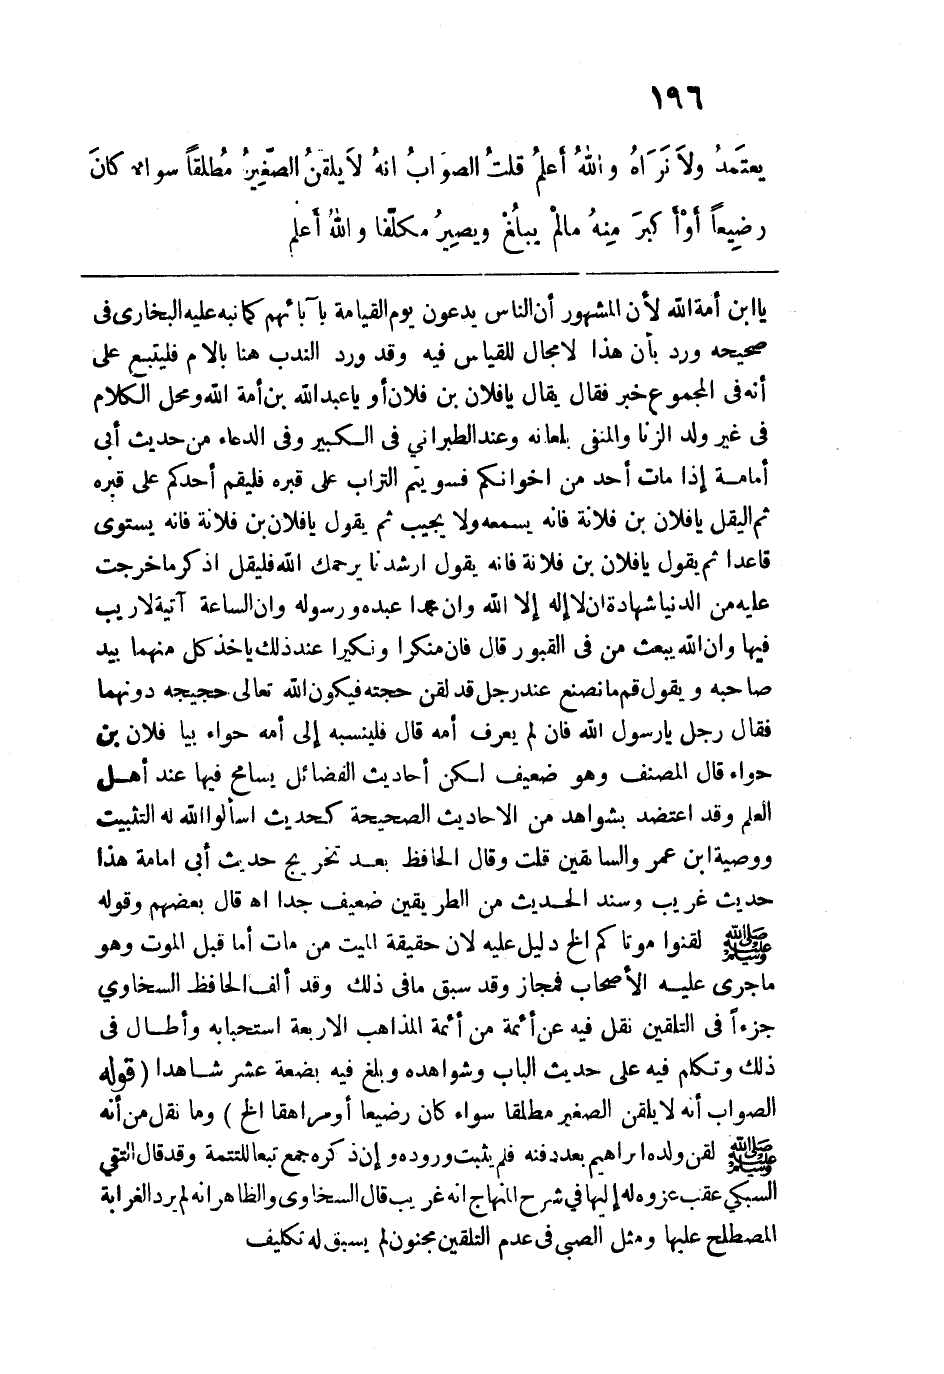 ١٩٦
يعتَمَدُ ولاَ نَرَاهُ واللهُ أعلمُ قلتُ الصوَابُ انهُ لاَيلقنُ الصّغِيرُ مُطلقاً سواءٌ كانَ
رضِيعاً أوْأكبرَ مِنهُ مالمْ يبلُغْ ويصِيرُ مكلّفا واللهُ أعلم
ياابن أمة الله لأن المشهور أن الناس يدعون يوم القيامة بآبائهم كما نبه عليه البخارى فى
صحيحه ورد بأن هذا لامجال للقياس فيه وقد ورد الندب هنا بالام فليتبع على
أنه فى المجموع خبر فقال يقال يافلان بن فلان أو ياعبد الله بن أمة الله ومحل الكلام
فى غير ولد الزنا والمنفى بلعانه وعند الطبرانى فى الكبير وفى الدعاء من حديث أبى
أمامة إذا مات أحد من اخوانكم فسويتم التراب على قبره فليقم أحدكم على قبره
ثم اليقل يافلان بن فلانة فانه يسمعه ولا يجيب ثم يقول يافلان بن فلانة فانه يستوى
قاعدا ثم يقول يافلان بن فلانة فانه يقول ارشدنا يرحمك الله فليقل اذكر ماخرجت
عليه من الدنيا شهادة ان لاإله إلا الله وان محمدا عبده ورسوله وان الساعة آتية لاريب
فيها وان الله يبعث من فى القبور قال فان منكرا ونكيرا عند ذلك ياخذ كل منهما بيد
صاحبه ويقول قم مانصنع عند رجل قد لقن حجته فيكون الله تعالى حجيجه دونهما
فقال رجل يارسول الله فان لم يعرف أمه قال فلينسبه إلى أمه حواء بيا فلان بن
حواء قال المصنف وهو ضعيف لكن أحاديث الفضائل يسامح فيها عند أهل
العلم وقد اعتضد بشواهد من الاحاديث الصحيحة كحديث اسألوا الله له التثبيت
ووصية ابن عمر والسابقين قلت وقال الحافظ بعد تخريج حديث أبى امامة هذا
حديث غريب وسند الحديث من الطريقين ضعيف جدا اه قال بعضهم وقوله
ﷺ لقنوا موتاكم الخ دليل عليه لان حقيقة الميت من مات أما قبل الموت وهو
ماجرى عليه الأصحاب فمجاز وقد سبق مافى ذلك وقد ألف الحافظ السخاوي
جزءاً فى التلقين نقل فيه عن أئمة من أئمة المذاهب الاربعة استحبابه وأطال فى
ذلك وتكلم فيه على حديث الباب وشواهده وبلغ فيه بضعة عشر شاهدا (قوله
الصواب أنه لايلقن الصغير مطلقا سواء كان رضيعا أو مراهقا الخ) وما نقل من أنه
ﷺ لقن ولده ابراهيم بعد دفنه فلم يثبت وروده وإن ذكره جمع تبعا للتتمة وقد قال التقي
السبكي عقب عزوه له إليها في شرح المنهاج انه غريب قال السخاوى والظاهر انه لم يرد الغرابة
المصطلح عليها ومثل الصبى فى عدم التلقين مجنون لم يسبق له تكليف